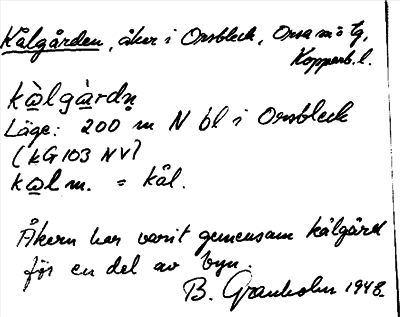 Kålgården, åker i Orsbleck, Orsa sn o tg,
Kopparb. l.
kàlgàrdn̥
Läge: 200 m N bl i Orsbleck
(kG103 NV)
kal m. = kål.
Åkern har varit gemensam kålgård
för en del av byn.
B. Granholm 1948.